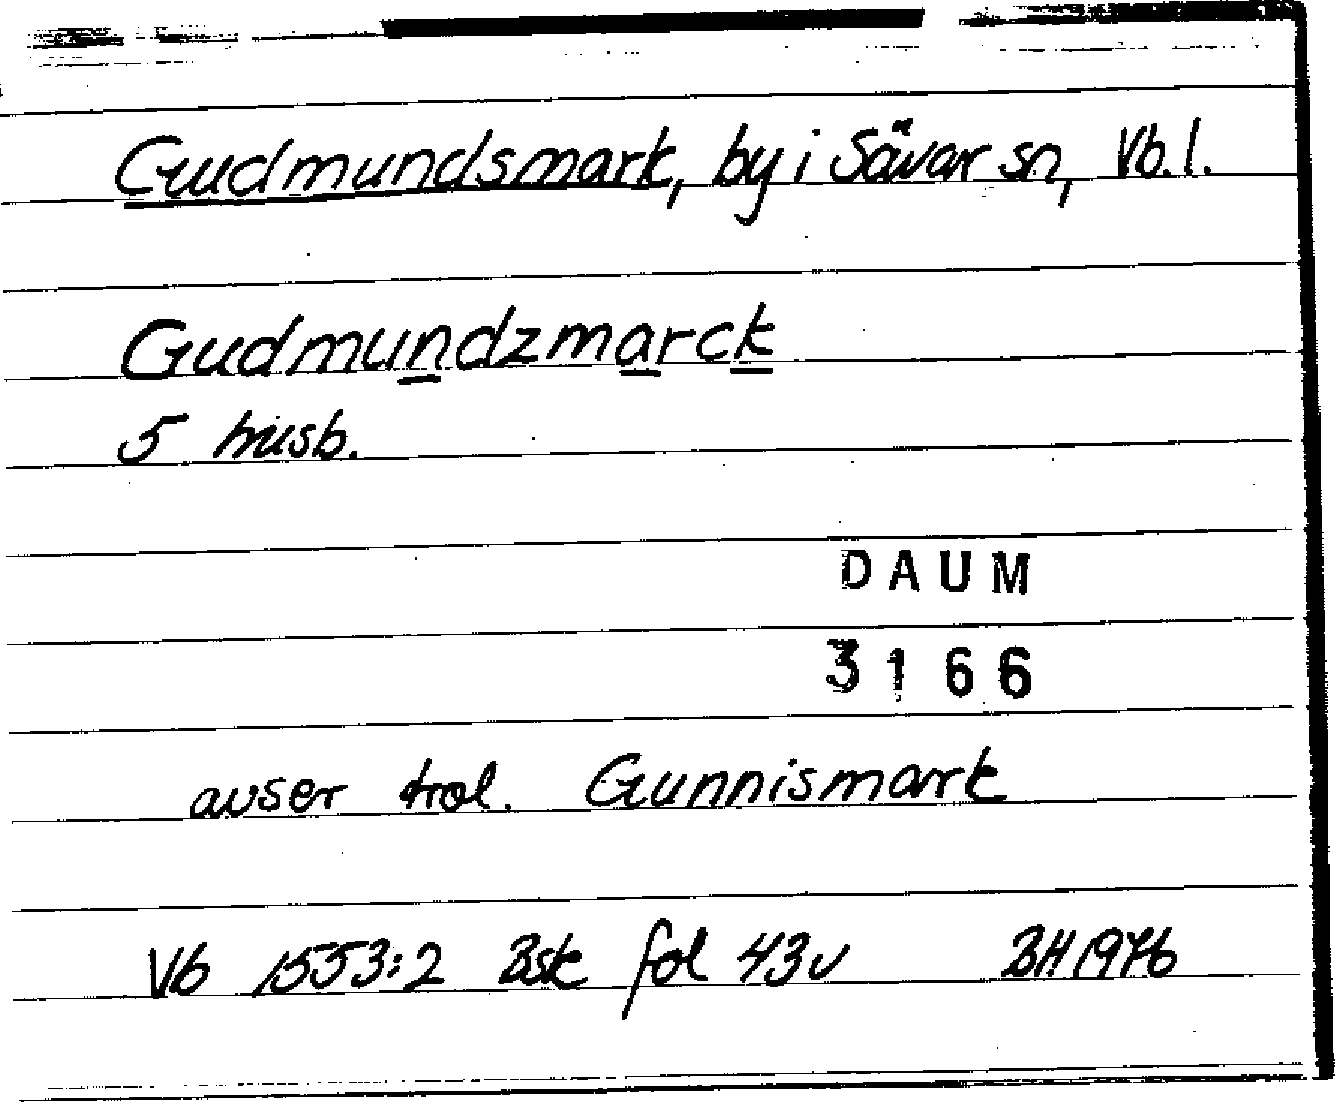 Gudmundsmark, by i Sävar sn, Vb. l.
Gudmundzmarck
5 husb.
DAUM
3166
avser trol. Gunnismark
Vb 1553:2 Bsk fol 43v BH 1976